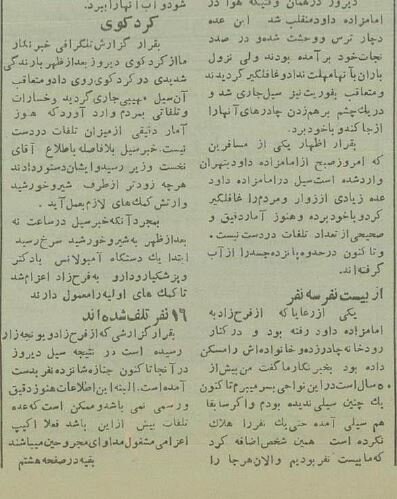 دیروز درهمان وقتیکه هوا در
امامزاده داود منقلب شد این عده
دچار ترس ووحشت شده و در صدد
نجات خود بر آمده بودند ولی نزول
باران بآنها مهلت نداد و غافلگیر گردیدند
ومتعاقب بفوریت نیز سیل جاری شد و
دریك چشم برهم زدن چادرهای آنها را
از جا کنده و باخود برد.
بقرار اظهار یکی از مسافرین
که امروز صبح از امامزاده داود بتهران
وارد شده است سیل در امامزاده داود
عده زیادی از زوار و مردم را غافلگیر
کرد و باخود برده و هنوز آمار دقیق و
صحیحی از تعداد تلفات در دست نیست.
و تا کنون در حدود پانزده جسد را از آب
گرفته اند.
از بیست نفر سه نفر
یکی از رعایا که از فرح زاد به
امامزاده داود رفته بود و در کنار
رودخانه چادر زده و خانواده اش را مسکن
داده بود بخبرنگار ما گفت من بیش از
۵۰ سال است در این نواحی بسر میبرم تا کنون
یك چنین سیلی ندیده بودم واگر سابقا
هم سیلی آمده حتی یك نفر را هلاك
نکرده است همین شخص اضافه کرد
که ما بیست نفر بودیم و الان هر جا را
شود و آب آنها را ببرد.
کردکوی
بقرار گزارش تلگرافی خبرنگار
ما از کردکوی دیروز بعدازظهر بارندگی
شدیدی در کردکوی روی داد و متعاقب
آن سیل مهیبی جاری گردید و خسارات
و تلفاتی بمردم وارد آورد که هنوز
آمار دقیقی از میزان تلفات دردست
نیست. خبر سیل بلافاصله باطلاع آقای
نخست وزیر رسید و ایشان دستور دادند
هرچه زودتر از طرف شیر و خورشید
و ارتش کمك های لازم بعمل آید.
بمجرد آنکه خبر سیل در ساعت نه
بعدازظهر به شیر و خورشید سرخ رسید
ابتدا یك دستگاه آمبولانس با دکتر
و پزشکیار و دارو به فرح زاد اعزام شد
تا کمك های اولیه را معمول دارند
۱۶ نفر تلف شده اند
بقرار گزارشی که از فرح زاد و یونجه زار
رسیده است در نتیجه سیل دیروز
در آنجا تا کنون جنازه شانزده نفر بدست
آمده است. البته این اطلاعات هنوز دقیق
و رسمی نمی باشد و ممکن است که عده
تلفات بیش از این باشد فعلا اکیپ
اعزامی مشغول مداوای مجروحین میباشند
بقیه در صفحه هشتم